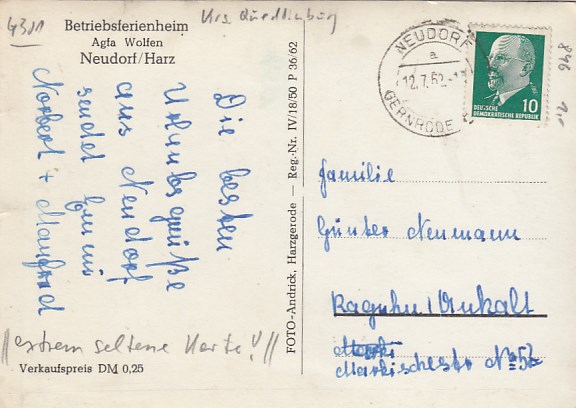 4301
Krs. Quedlinburg
Betriebsferienheim
Agfa Wolfen
Neudorf/Harz
NEUDORF
a
12.7.62
GERNRODE
DEUTSCHE
DEMOKRATISCHE REPUBLIK
10
846
Die besten
Urlaubsgrüße
aus Neudorf
sendet
Norbert + Manfred
FOTO-Andrick, Harzgerode — Reg.-Nr. IV/18/50 P 36/62
Familie
Günter Neumann
Raguhn/Anhalt
Markischestr N:
//extrem seltene Karte!//
Verkaufspreis DM 0,25